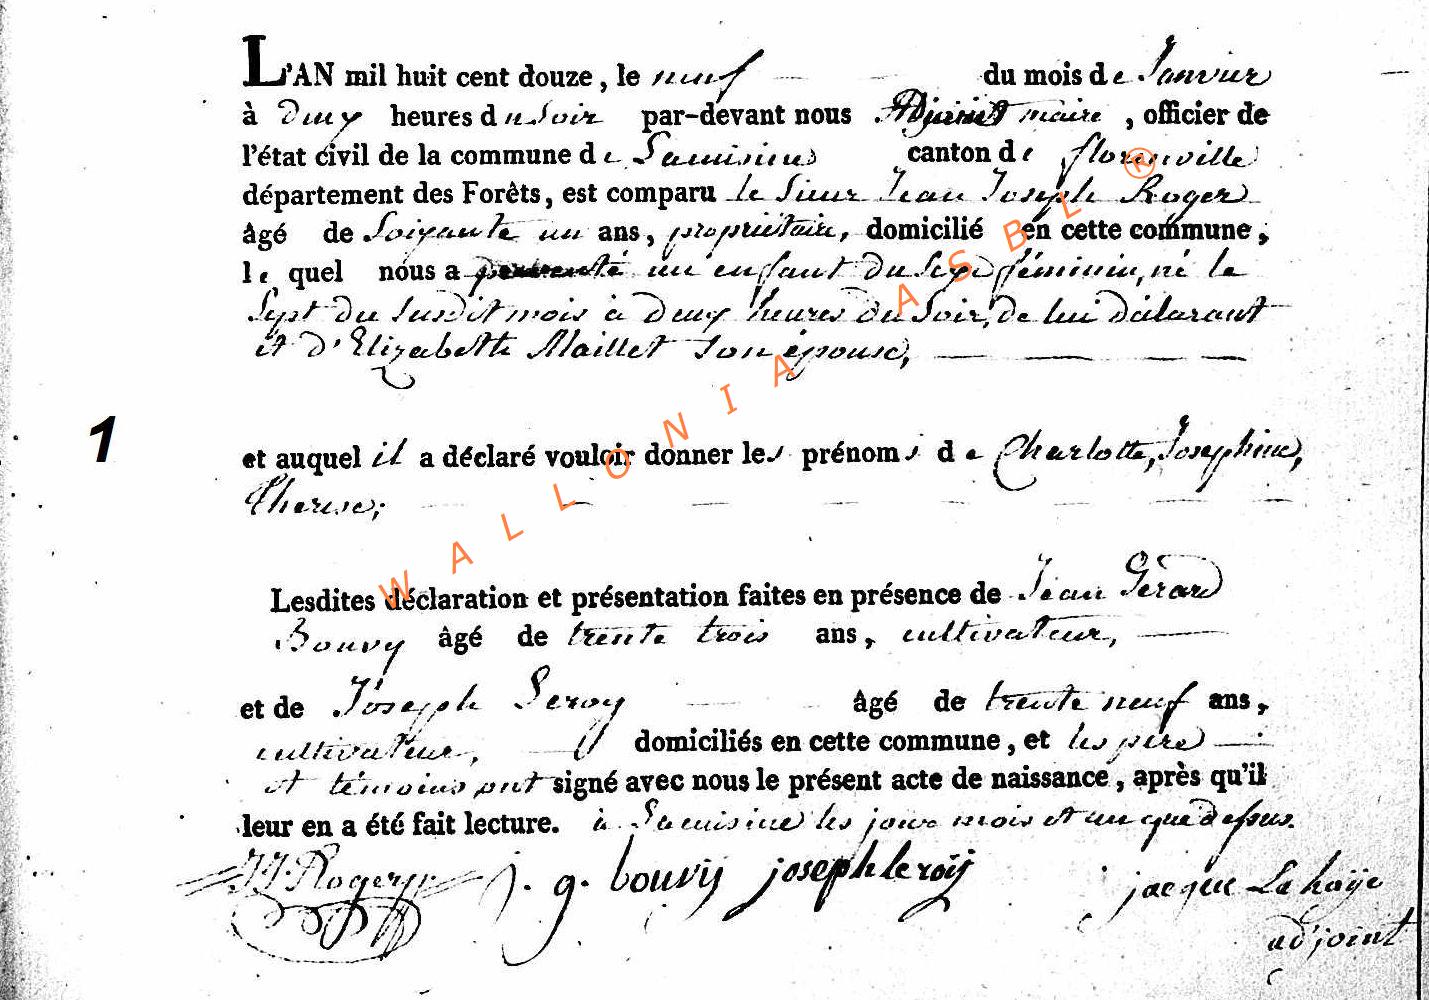 L'AN mil huit cent douze, le neuf du mois de Janvier
à deux heures du Soir par-devant nous Adjoint maire, officier de
l'état civil de la commune de Lacuisine canton de florenville
département des Forêts, est comparu le Sieur Jean Joseph Roger
âgé de Soixante un ans, propriétaire, domicilié en cette commune,
lequel nous a présenté un enfant du Sexe féminin, né le
Sept du Susdit mois à deux heures du Soir, de lui déclarant
et d'Elizabeth Maillet Son épouse,
1
et auquel il a déclaré vouloir donner les prénoms de Charlotte, Josephine,
Therese;
Lesdites déclaration et présentation faites en présence de Jean Gérard
Bouvy âgé de trente trois ans, cultivateur,
et de Joseph Leroy âgé de trente neuf ans,
cultivateur, domiciliés en cette commune, et les père
et témoins ont signé avec nous le présent acte de naissance, après qu'il
leur en a été fait lecture. à Lacuisine les jour mois et an que dessus.
JJ. Roger j. g. bouvy joseph leroÿ jacque Lahaÿe
adjoint
WALLONIA ASBL ®